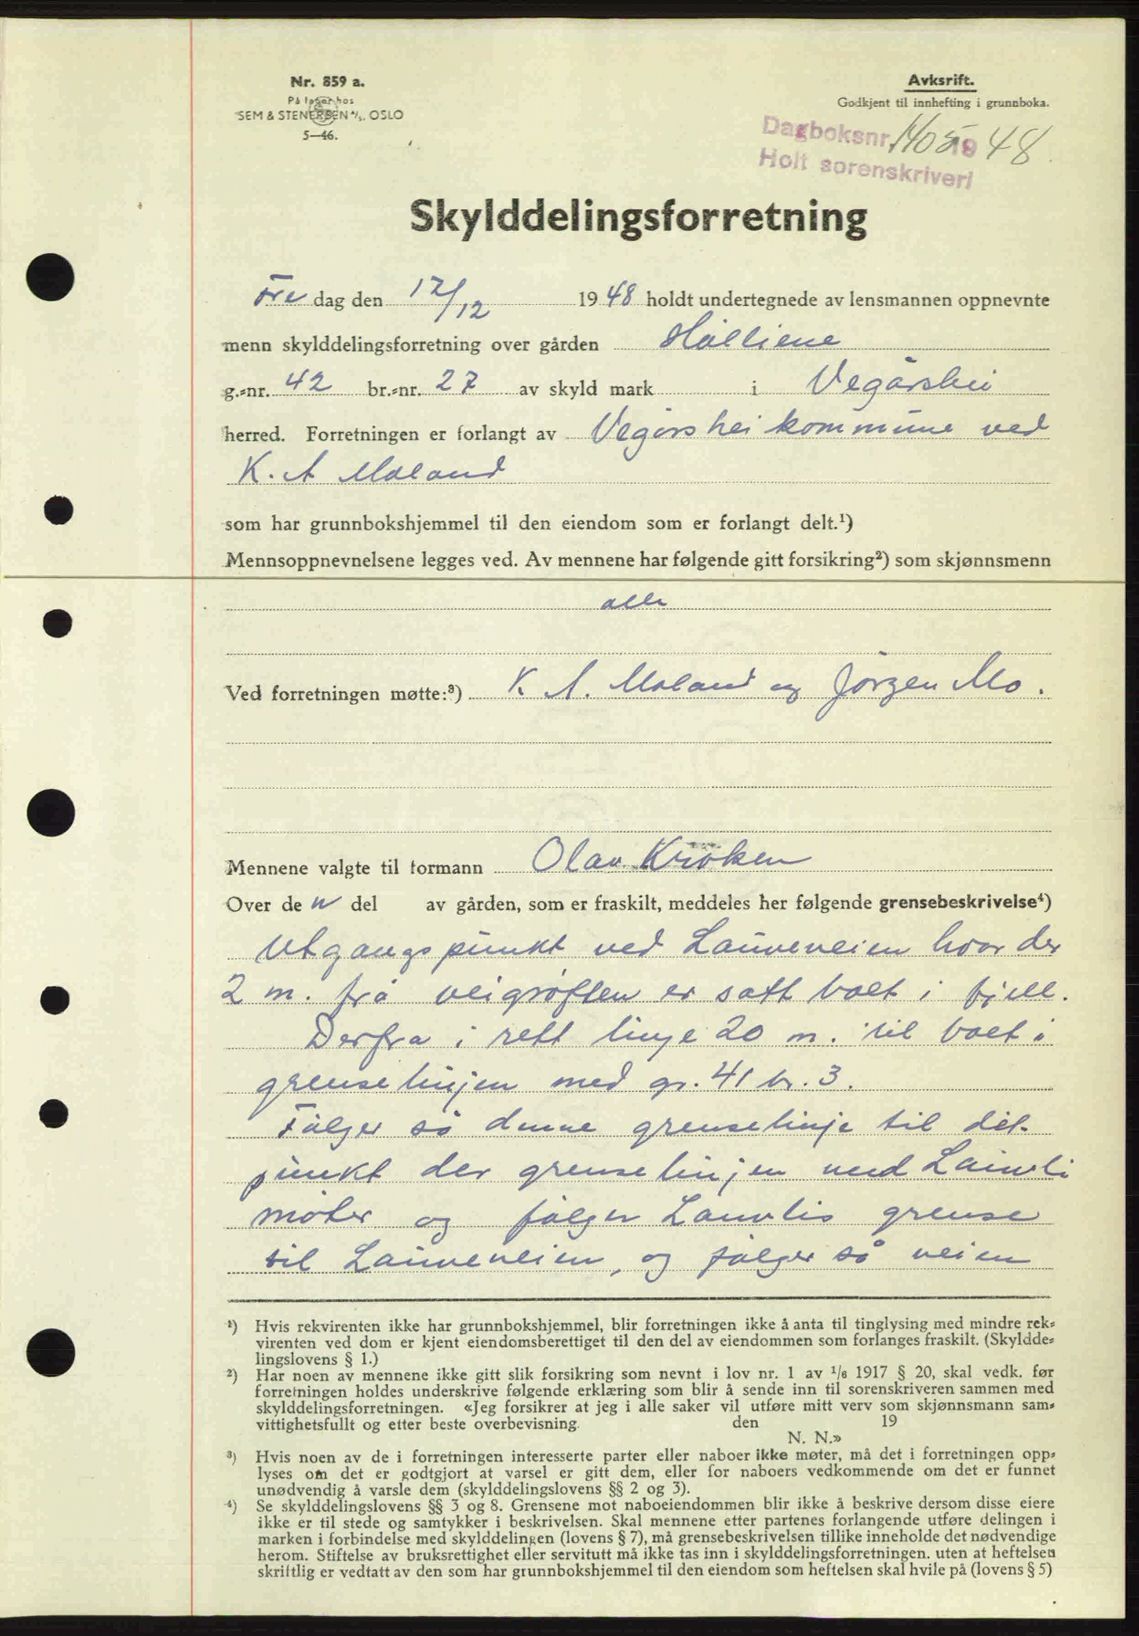 Nr. 859 a.
På lager hos
SEM & STENERSEN A/S. OSLO
5—46.
Avksrift.
Godkjent til innhefting i grunnboka.
Dagboksnr. 1405 19 48
Holt sorenskriveri
Skylddelingsforretning
Fre dag den 17/12 1948 holdt undertegnede av lensmannen oppnevnte
menn skylddelingsforretning over gården Hålliene
g.-nr. 42 br.-nr. 27 av skyld mark i Vegårshei
herred. Forretningen er forlangt av Vegårshei kommune ved
K. A Moland
som har grunnbokshjemmel til den eiendom som er forlangt delt.¹)
Mennsoppnevnelsene legges ved. Av mennene har følgende gitt forsikring²) som skjønnsmenn
alle
Ved forretningen møtte:³) K A. Moland og Jörgen Mo.
Mennene valgte til formann Olav Kroken
Over de n del av gården, som er fraskilt, meddeles her følgende grensebeskrivelse⁴)
Utgangspunkt ved Lauveveien hvor der
2 m. frå veigrøften er satt bolt i fjell.
Derfra i rett linje 20 m. til bolt i
grenselinjen med gr. 41 br. 3.
Følger så denne grenselinje til det
punkt der grenselinjen med Lauvli
møter og følger Lauvlis grense
til Lauveveien, og følger så veien
¹) Hvis rekvirenten ikke har grunnbokshjemmel, blir forretningen ikke å anta til tinglysing med mindre rek-
virenten ved dom er kjent eiendomsberettiget til den del av eiendommen som forlanges fraskilt. (Skyldde-
lingslovens § 1.)
²) Har noen av mennene ikke gitt slik forsikring som nevnt i lov nr. 1 av 1/6 1917 § 20, skal vedk. før
forretningen holdes underskrive følgende erklæring som blir å sende inn til sorenskriveren sammen med
skylddelingsforretningen. «Jeg forsikrer at jeg i alle saker vil utføre mitt verv som skjønnsmann sam-
vittighetsfullt og etter beste overbevisning. den 19
N. N.»
³) Hvis noen av de i forretningen interesserte parter eller naboer ikke møter, må det i forretningen opp-
lyses om det er godtgjort at varsel er gitt dem, eller for naboers vedkommende om det er funnet
unødvendig å varsle dem (skylddelingslovens §§ 2 og 3).
⁴) Se skylddelingslovens §§ 3 og 8. Grensene mot naboeiendommen blir ikke å beskrive dersom disse eiere
ikke er til stede og samtykker i beskrivelsen. Skal mennene etter partenes forlangende utføre delingen i
marken i forbindelse med skylddelingen (lovens § 7), må grensebeskrivelsen tillike inneholde det nødvendige
herom. Stiftelse av bruksrettighet eller servitutt må ikke tas inn i skylddelingsforretningen. uten at heftelsen
skriftlig er vedtatt av den som har grunnbokshjemmel til den eiendom som heftelsen skal hvile på (lovens § 5)